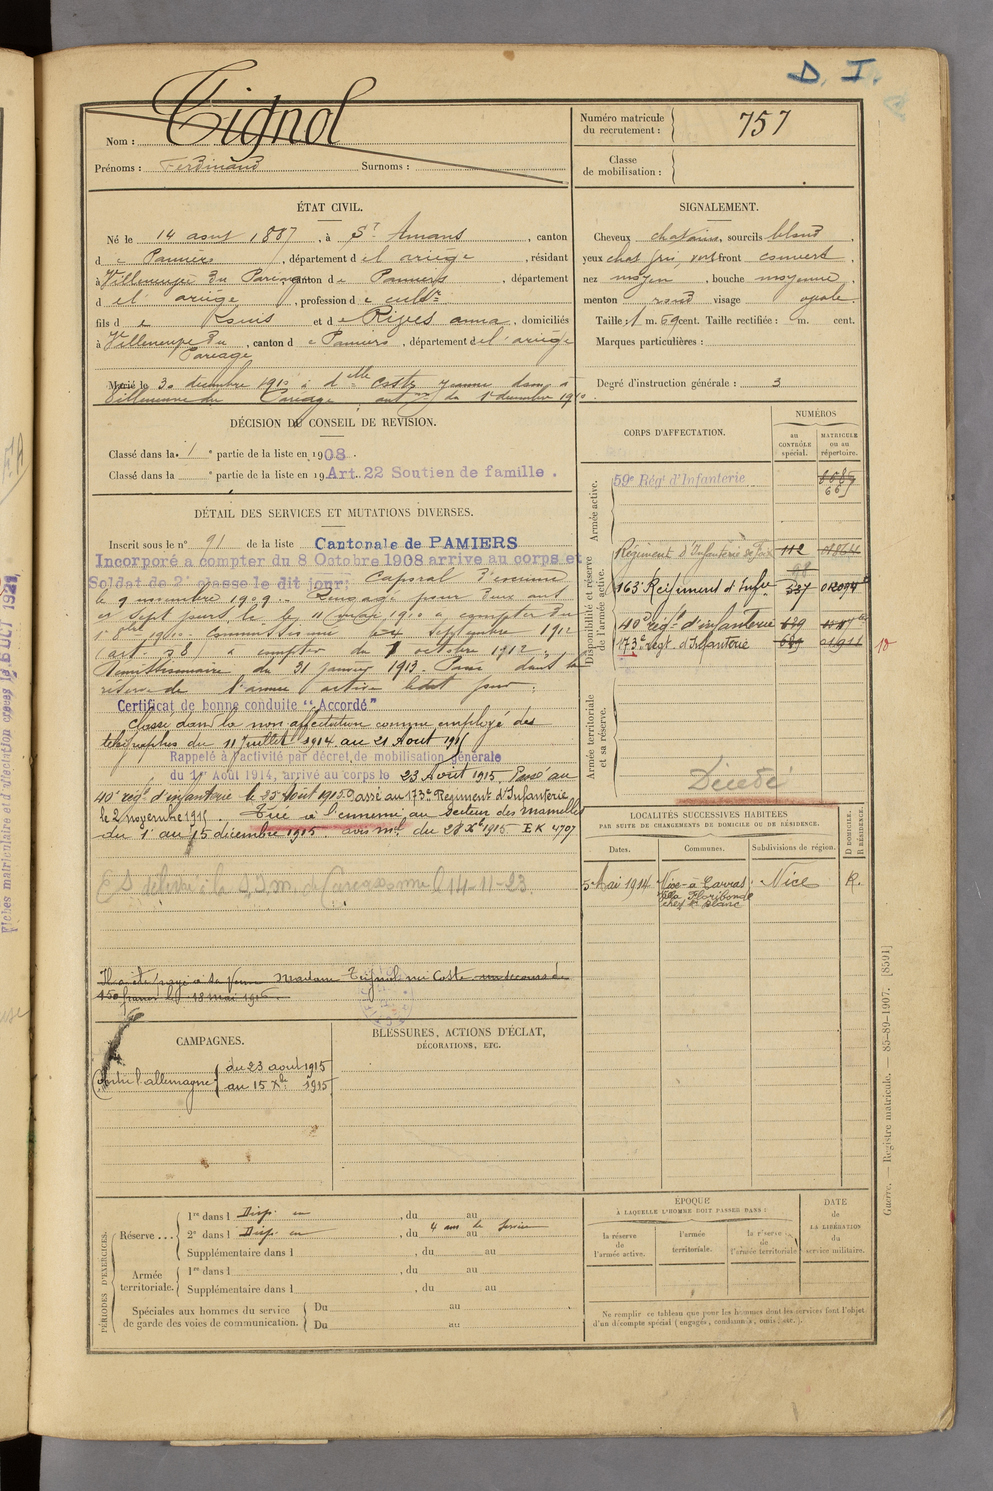 D. I.
Nom : Tignol
Prénoms : Ferdinand Surnoms :
Numéro matricule du recrutement : 757
Classe de mobilisation :
ÉTAT CIVIL.
Né le 14 aout 1887, à St Amans, canton
d e Pamiers, département de l'ariège, résidant
à Villeneuve du Pareage, canton de Pamiers, département
d e l'ariège, profession de cultr
fils de Louis et de Rives anna, domiciliés
à Villeneuve du Pareage, canton de Pamiers, département de l'ariège
Marié le 30 decembre 1910 à delle Costes Jeanne à
Villeneuve du Pareage, auton du 1er decembre 1910.
DÉCISION DU CONSEIL DE REVISION.
Classé dans la 1e partie de la liste en 1908.
Classé dans la e partie de la liste en 19 Art. 22 Soutien de famille.
DÉTAIL DES SERVICES ET MUTATIONS DIVERSES.
Inscrit sous le n° 91 de la liste Cantonale de PAMIERS
Incorporé à compter du 8 Octobre 1908 arrivé au corps et
Soldat de 2e classe le dit jour; Caporal d'escouade
le 9 novembre 1909. Rengagé pour deux ans
et sept jours le 11 mars 1910 à compter du
1er 8bre 1910. Commissionné le 4 Septembre 1912
(art. 58) à compter du 1 octobre 1912.
Demissionnaire du 31 janvier 1913. Passé dans la
réserve de l'armée active ledit jour.
Certificat de bonne conduite "Accordé"
Classé dans la non affectation comme employé des
télégraphes du 11 juillet 1914 au 21 Aout 1915
Rappelé à l'activité par décret de mobilisation générale
du 1er Août 1914, arrivé au corps le 23 Août 1915. Passé au
40e rég. d'infanterie le 25 Août 1915. Passé au 173e Régiment d'Infanterie
le 2 novembre 1915. Tué à l'ennemi au secteur des mamelles
du 1 au 15 décembre 1915. avis ml du 28 Xbre 1915 EK 4707
ES délivré à la 9 J.m. de Carcassonne le 14-11-23
Il a été payé à sa Veuve Madame Tignol née Coste un secours de
150 francs le 18 mai 1916.
CAMPAGNES.
Contre l'allemagne du 23 aout 1915
au 15 Xbre 1915
BLESSURES, ACTIONS D'ÉCLAT,
DÉCORATIONS, ETC.
PÉRIODES D'EXERCICES.
Réserve ... 1re dans l Disp. en, du au
2e dans l Disp. en, du 4 ans de service au
Supplémentaire dans l, du au
Armée territoriale. 1re dans l, du au
Supplémentaire dans l, du au
Spéciales aux hommes du service
de garde des voies de communication. Du au
Du au
SIGNALEMENT.
Cheveux chatains, sourcils blond,
yeux chat gris, vert front couvert,
nez moyen, bouche moyenne,
menton rond visage ovale.
Taille : 1 m. 69 cent. Taille rectifiée : m. cent.
Marques particulières :
Degré d'instruction générale : 3
CORPS D'AFFECTATION.
NUMÉROS
au CONTRÔLE spécial.
MATRICULE ou au répertoire.
Armée active.
59e Rég. d'Infanterie
Disponibilité et réserve de l'armée active.
Régiment d'Infanterie de Foix 112
163e Régiment d'Infie 337
40e régt d'infanterie 629
173e régt d'Infanterie
Armée territoriale et sa réserve.
Décédé
LOCALITÉS SUCCESSIVES HABITÉES
PAR SUITE DE CHANGEMENTS DE DOMICILE OU DE RÉSIDENCE.
Dates. Communes. Subdivisions de région. D DOMICILE. R RÉSIDENCE.
5 Mai 1914 Nice à Carras Nice R.
Villa Floribonde
chez M. Blanc
ÉPOQUE
À LAQUELLE L'HOMME DOIT PASSER DANS :
la réserve de l'armée active.
l'armée territoriale.
la réserve de l'armée territoriale
DATE de LA LIBÉRATION du service militaire.
Ne remplir ce tableau que pour les hommes dont les services font l'objet
d'un décompte spécial (engagés, condamnés, omis, etc.).
Guerre. — Registre matricule. — 85-89-1907. [8591]